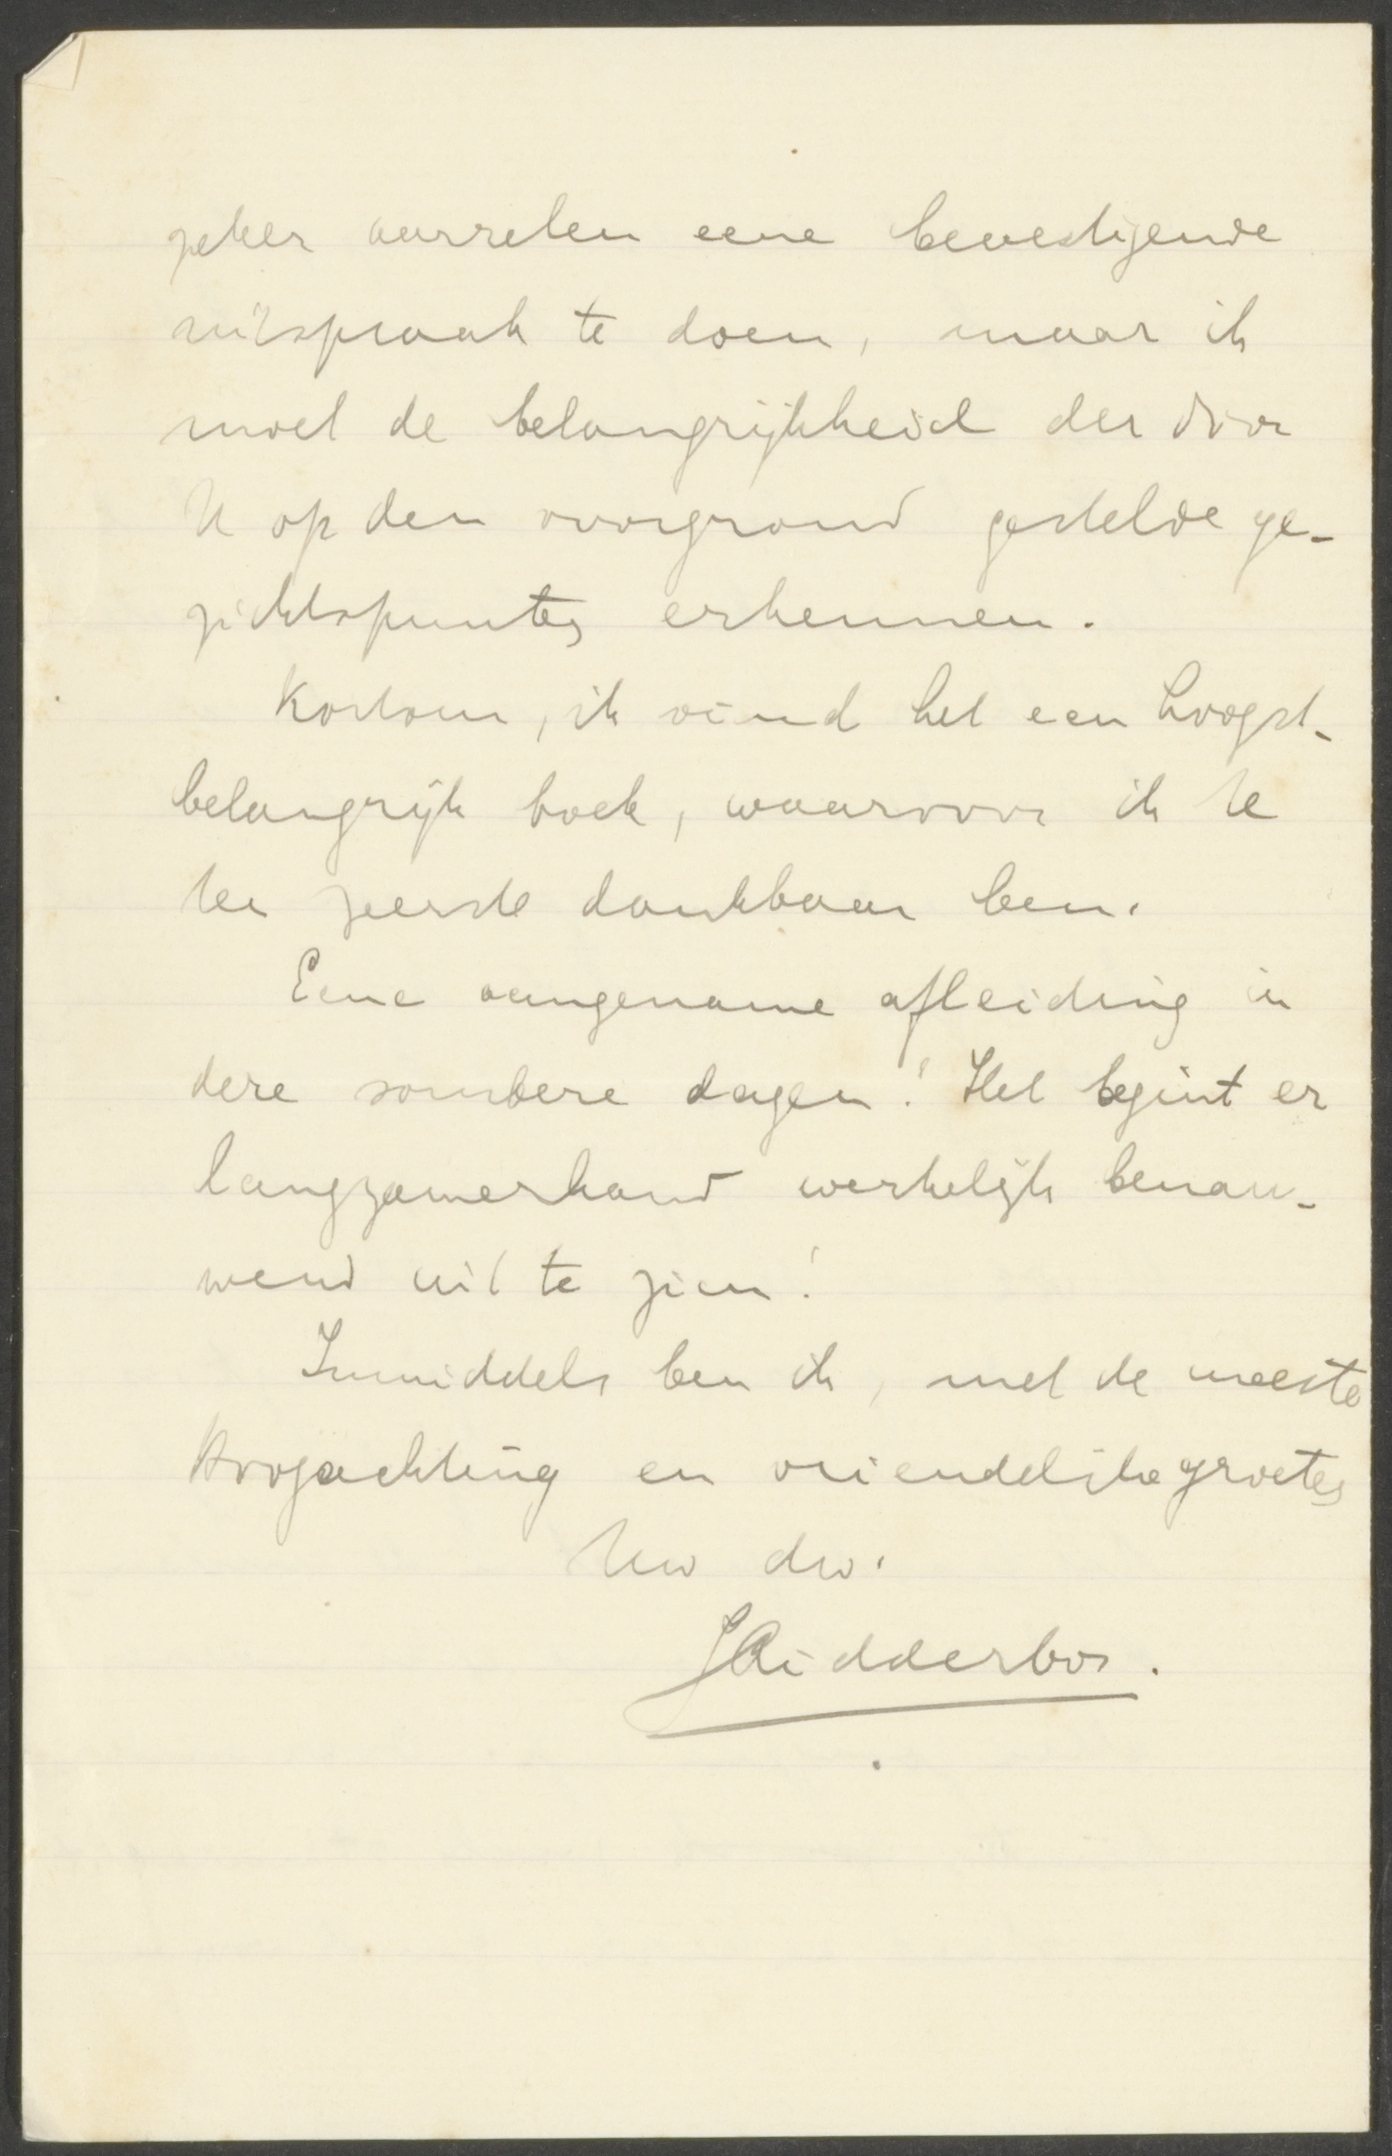 zeker aarzelen eene bevestigende
uitspraak te doen, maar ik
moet de belangrijkheid der door
U op den voorgrond gestelde ge-
zichtspunten erkennen.
Kortom, ik vind het een hoogst-
belangrijk boek, waarvoor ik U
ten zeerste dankbaar ben.
Eene aangename afleiding in
deze sombere dagen! Het begint er
langzamerhand werkelijk benau-
wend uit te zien!
Inmiddels ben ik, met de meeste
hoogachting en vriendelijke groeten
Uw dw.
JRidderbos.